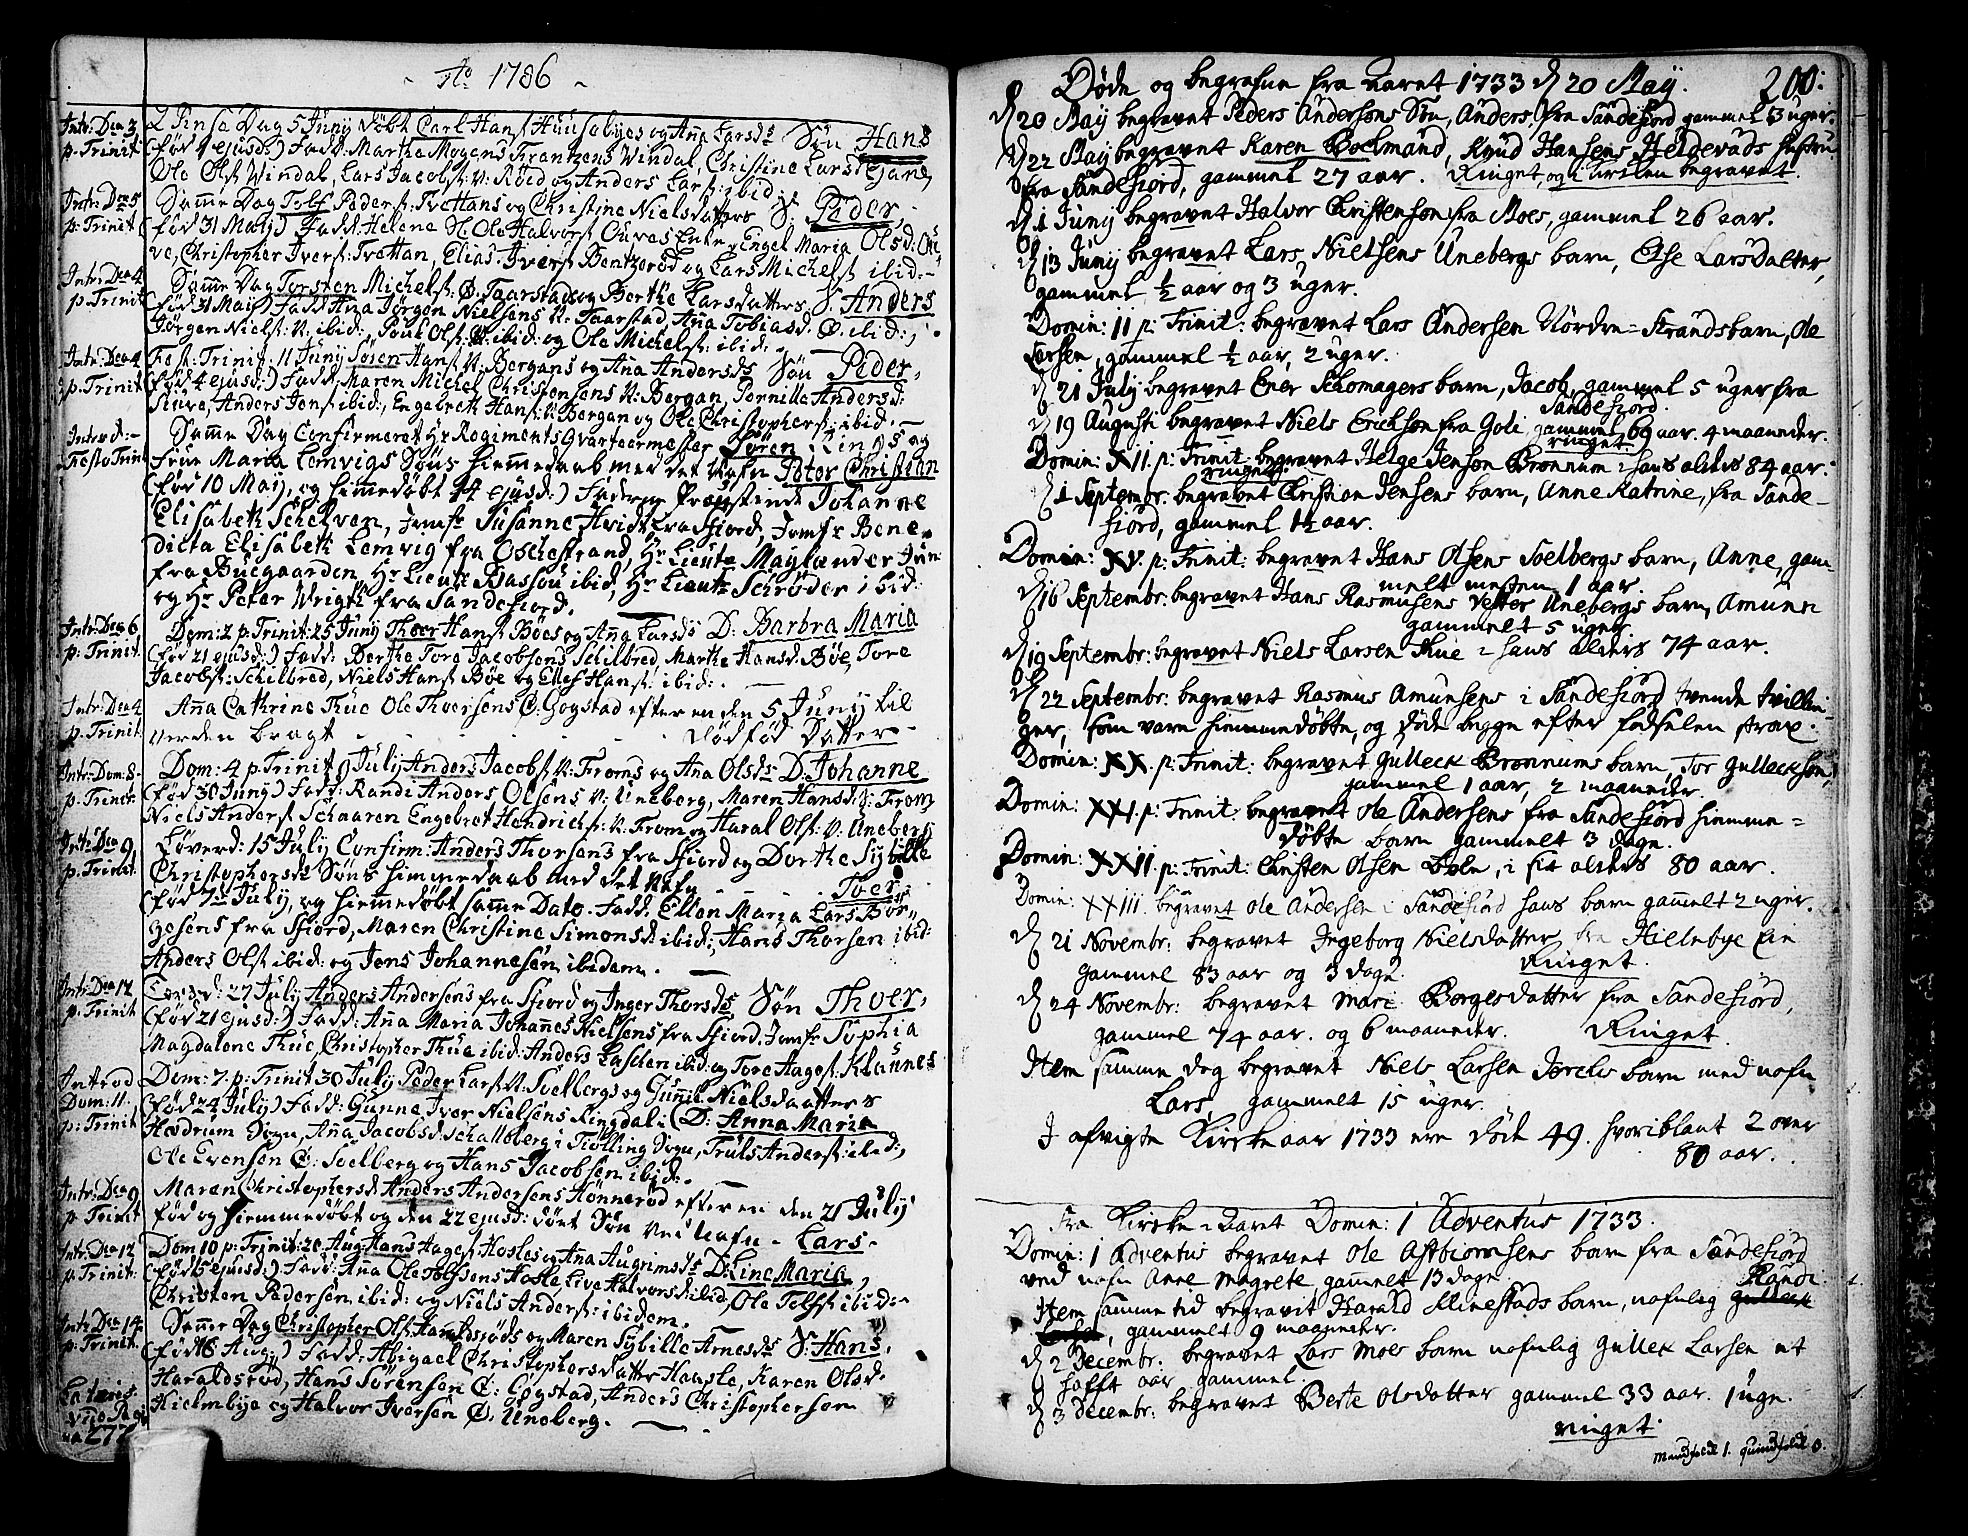 Ao 1786
Intr: Dca 3
p. Trinit
2 Pinse Dag 5 Junij døbt Carl Hansſ Huusebyes og Aña Larsds Søn Hans
(fød 1 ejusd:) Fadd: Marthe Mogens Frantzens Windal, Christine Lars Gjane,
Ole Olsſ Windal, Lars Jacobsſ: N: Røed og Anders Larsſ: ibid:
Intr: Dca 5
p: Trinit
Samme Dag Tolf Pedersſ: Trættans og Christine Nielsdatters S: Peder,
(fød 31 Maij) Fadd: Helene Sl. Ole Halvorsſ Ouves Enke, Engel Maria Olsd: Ou
ve, Christopher Iversſ: Trættan, Elias Iversſ Bentzerød og Lars Michelsſ ibid:
Intr: Dca 4
p: Trinit
Samme Dag Torsten Michelsſ: Ø. Taarstads og Berthe Larsdatters S. Anders
(fød 31 Maij) Fadd Aña Jørgen Nielsens N. Taarstad, Aña Tobiasd. Ø. ibid:,
Jørgen Nielsſ: N: ibid:, Poul Olsſ: V. ibid: og Ole Michelsſ: ibid:
Intr: Dca 4
p: Trinit
Fest: Trinit. 11 Junij Søren Hansſ N: Bergans og Aña Andersds Søn Peder,
(fød 4 ejusd:) Fadd, Maren Michel Christensens N: Bergan, Pernille Andersd:
Stuve, Anders Jensſ ibid:, Engebret Hansſ: N: Bergan og Ole Christophersſ: ibid.
Introd:
Festo Trinit
Samme Dag Confirmeret Hr Regiments Qvarteermester Søren Rings og
Frue Maria Lemvigs Søns Hiemmedaab med det Nafn Peter Christian
(fød 10 Maij, og hiemmedøbt 14 ejusd:) Faddere Provstinde Johanne
Elisabeth Schelven, Jomfr Susanne Hvidt fra Fjord, Jomfr Bene-
dicta Elisabeth Lemvig fra Oschestrand, Hr Lieutn Maylænder Jun:
fra Buegaarden, Hr Lieutn Klassou ibid, Hr Lieutn Schrøder ibid:
og Hr Peter Wright fra Sandefiord.
Intr: Dca 6
p: Trinit
Dom: 2 p: Trinit: 25 Junij Thoer Hansſ Bøes og Aña Larsds D: Barbra Maria
(fød 21 ejusd:) Fadd: Berthe Tore Jacobsens Schilbred, Marthe Hansd: Bøe, Tore
Jacobsſ: Schilbred, Niels Hansſ Bøe og Ellef Hansſ: ibid:
Intr: Dca 4
p. Trinit
Aña Cathrine Thue Ole Thoersens Ø: Gogstad efter en den 5 Junij til
Verden bragt - - - - Dødfød Datter
Intr: Dom: 8
p: Trinit
Dom: 4 p: Trinit 9 Julij Anders Jacobsſ N: Froms og Aña Olsds D: Johanne
(fød 30 Junij) Fadd: Randi Anders Olsens V: Uneberg, Maren Hansd: N: From,
Niels Andersſ Schaaren Engebret Hendrichsſ: N: From og Haral Olsſ: V. Uneberg
Intr: Dca 9
p. Trinit
Løverd: 15 Julij Confirm: Anders Thorsens fra Fjord og Dorthe Sybille
Christophersds Søns hiemmedaab med det Nafn - - - Toer
(fød 7de Julij, og hiemmedøbt samme Dato. Fadd. Ellen Maria Lars Bør-
gesens fra Fjord, Maren Christine Simonsd: ibid:, Hans Thorsen ibid:
Anders Olsſ ibid: og Jens Johannesen ibidem.
Intr: Dca 12
p. Trinit
Torsd: 27 Julij Anders Andersens fra Fjord og Inger Thorsds Søn Thoer,
(fød 21 ejusd:) Fadd: Aña Maria Johañes Nielsens fra Fjord, Jomfr Sophia
Magdalene Thue, Christopher Thue ibid: Anders Laschen ibid og Tore Hagesſ: Klavnes
Introd
Dom: 11
p: Trinit
Dom: 7. p: Trinit 30 Julij Peder Larsſ N: Soelbergs og Guñil Nielsdaatters
(fød 24 Julij) Fadd: Gunne Iver Nielsens Ringdal i (D: Anna Maria
Hædrum Sogn, Aña Jacobsd: Schallberg i Tiølling Sogn, Truls Andersſ: ibid:,
Ole Evensen Ø: Soelberg og Hans Jacobsen ibid:
Intr: Dca 9
p Trinit
Maren Christophersd: Anders Andersens Hønnerød efter en den 21 Julij
fød og hiemmedøbt og den 22 ejusd: død Søn ved Nafn - Lars
Intr: Dca 12
p: Trinit:
Dom 10 p: Trinit: 20 Aug: Hans Hagesſ Hasles og Aña Augrimsds D: Line Maria,
(fød 15 ejusd:) Fadd: Aña Ole Tolfsens Hasle Live Halvorsd: ibid, Ole Tolfsſ ibid:
Christen Pedersen ibid: og Niels Andersſ: ibidem.
Intr: Dca 14
p: Trinit.
Samme Dag Christopher Olsſ Haraldsrøds og Maren Sybille Arnesds S: Hans,
(fød 16 Aug:) Fadd: Abigael Christophersdatter Haasle, Karen Olsd.
Haraldsrød, Hans Sørensen Ø: Gogstad, Anders Christophersen
Hielmbye og Halvor Iversen Ø. Uneberg.
Cæteris
vide Pagi
na 277
Døde og begrafne fra aaret 1733 d 20 May. 200:
d 20 May begravet Peders Andersens Søn, Anders, fra Sandefiord gammel 3 uger.
d 22 May begravet Karen Bockmand, Knud Hansens Heldevads hustru
fra Sandefiord, gammel 27 aar. Ringet, og i kirken begravet.
d 1 Juny begravet Halvor Christensen fra Moes, gammel 26 aar.
d 13 Juny begravet Lars Nielsens Unebergs barn, Else Larsdatter,
gammel ½ aar og 3 uger.
Domin: 11 p: Trinit: begravet Lars Andersen Nordre-Strands barn, Ole
Larsen, gammel ½ aar, 2 uger.
d 21 July begravet Ener Schomagers barn, Jacob, gammel 5 uger fra
Sandefiord.
d 19 Augusti begravet Niels Ericksen fra Goli, gammel 69 aar. 4 maaneder.
ringet.
Domin: XII. p: Trinit: begravet Helge Jensen Brønnum i hans alders 84 aar.
ringet.
d 1 Septembr: begravet Christian Jensens barn, Anne Katrine, fra Sande-
fiord, gammel 1½ aar.
Domin: XV. p: Trinit: begravet Hans Olsens Soelbergs barn, Anne, gam-
melt mesten 1 aar.
d 16 Septembr: begravet Hans Rasmusens Vester Unebergs barn, Amunn
gammelt 5 uger
d 19 Septembr: begravet Niels Larsen Thue i hans alders 74 aar.
d 22 Septembr: begravet Rasmus Amunsens i Sandefiord tvende tvillin-
ger, som vare hiemmedøbte, og døde begge efter fødselen strax.
Domin: XX. p: Trinit: begravet Gulleck Brønnums barn, Tor Gullecksen,
gammel 1 aar, 2 maaneder.
Domin: XXI. p: Trinit: begravet Ole Andersens fra Sandefiord hiemme-
døbte barn gammelt 3 dage.
Domin: XXII. p: Trinit: Christen Olsen Bøle, i sit alders 80 aar.
Domin: XXIII. begravet Ole Andersen i Sandefiord hans barn gamelt 2 uger.
d 21 Novembr: begravet Ingeborg Nielsdatter fra Hielmbye Ein
gammel 83 aar og 3 dage. Ringet.
d 24 Novembr: begravet Mari Borgersdatter fra Sandefiord,
gammel 74 aar. og 6 maaneder. Ringet.
Item samme dag begravet Niels Larsen Jørches barn med nafn
Lars, gammelt 15 uger.
I afvigte Kirke aar 1733 ere døde 49. hvoriblant 2 over
80 aar.
Fra Kircke-Aaret Domin: 1 Adventus 1733.
Domin: 1 Adventus begravet Ole Astbiornsens barn fra Sandefiord
ved nafn Anne Magrete gammelt 13 dage.
Randi
Item samme tid begravit Harald Minestads barn, nafnlig
, gammelt 9 maaneder.
d 2 Decembr: begravet Lars Moes barn nafnlig Gulleck Larsen et
halft aar gammel.
d 3 Decembr: begravet Berte Olsdatter gammel 33 aar. 1 uge.
ringet.
Mandfolk 1. quindfolk 0.